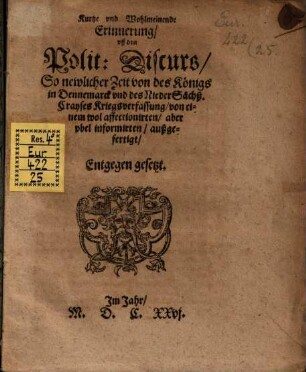 Kurtze vnd Wohlmeinende
Erinnerung/
vff den
Polit: Discurs/
So newlicher Zeit von des Königs
in Dennemarck vnd des Nieder Sächß.
Crayses Kriegsverfassung/ von ei-
nem wol affectionirten/ aber
vbel informirten/ außge-
fertigt/
Entgegen gesetzt.
Im Jahr/
M. D. C. XXvj.
Eur.
422
25.
Res. 4°
Eur
422
25